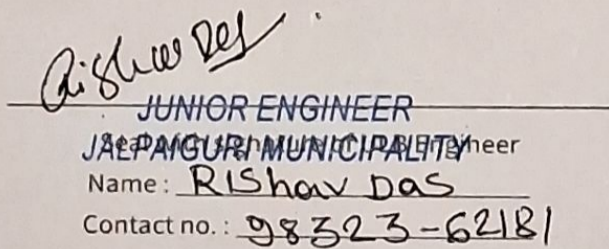 Rishav Das
JUNIOR ENGINEER
JALPAIGURI MUNICIPALITY
Seal Engineer
Name : RIShav Das
Contact no. : 98323-62181